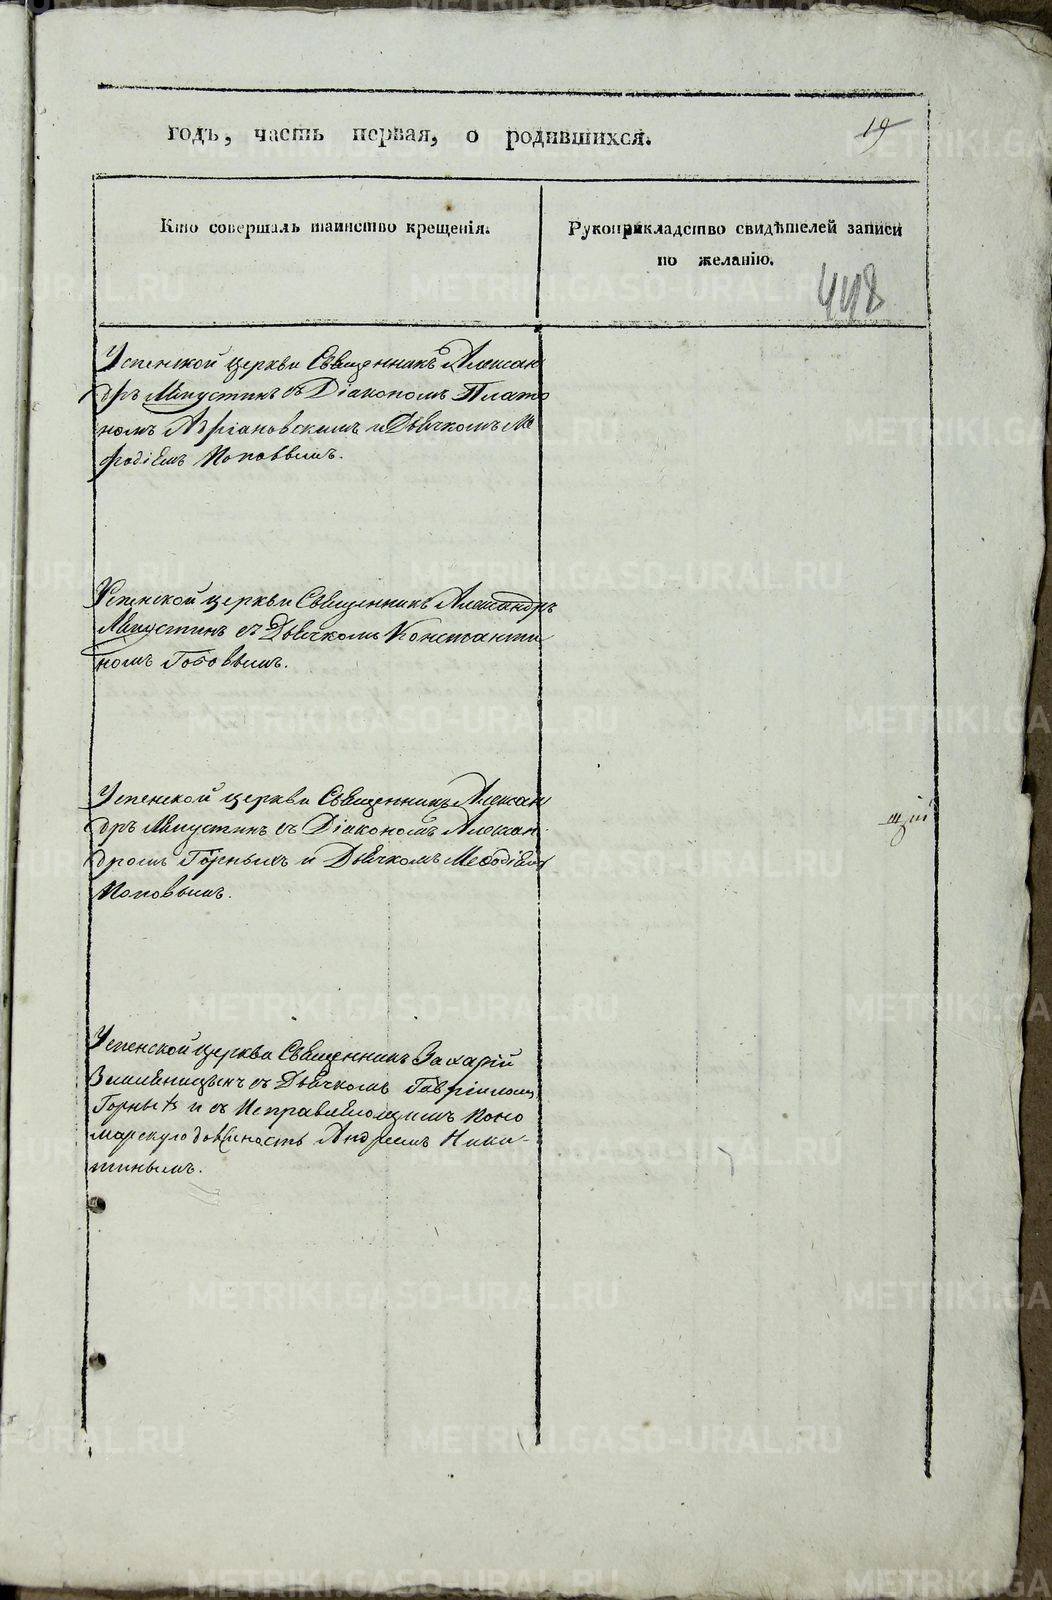 годъ, часть первая, о родившихся.
19
Кто совершалъ таинство крещенія.
Рукоприкладство свидѣтелей записи
по желанію.
448
Успенской церкви Священникъ Алексан
дръ Мипустинъ съ Діакономъ Плато
номъ Адріановскимъ и Дьячкомъ Ме
фодіемъ Поповымъ.
Успенской церкви Священникъ Александръ
Мипустинъ съ Дьячкомъ Константи
номъ Поповымъ.
Успенской церкви Священникъ Алексан
дръ Мипустинъ съ Діакономъ Алексан-
дромъ Горныхъ и Дьячкомъ Меѳодіемъ
Поповымъ.
щій
Успенской церкви Священникъ Захарій
съ Дьячкомъ Гавріиломъ
Горныхъ и съ Исправляющимъ Поно
марскую должность Андреемъ Ники-
тинымъ.
METRIKI.GASO-URAL.RU